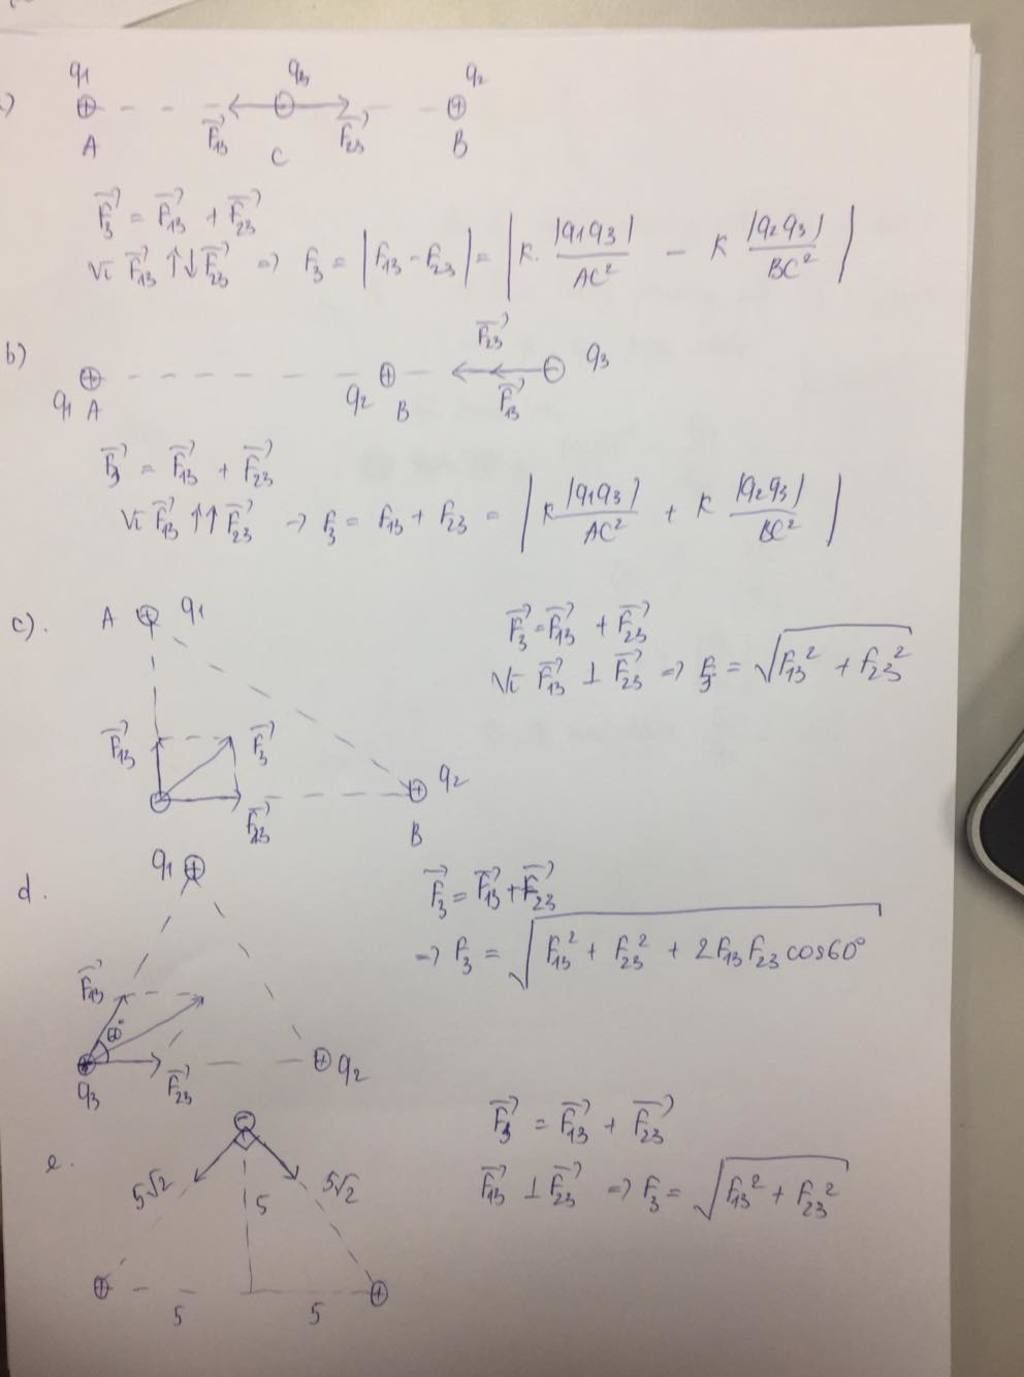 )
q₁ q₃ q₂
⊕ ⊖ ⊕
F₁₃⃗ F₂₃⃗
A C B
F₃⃗ = F₁₃⃗ + F₂₃⃗
Vì F₁₃⃗ ↑↓ F₂₃⃗ => F₃ = |F₁₃ - F₂₃| = |K. |q₁q₃|/AC² - K |q₂q₃|/BC²|
b)
F₂₃⃗
⊕ ⊕ ⊖ q₃
q₁ A q₂ B F₁₃⃗
F₃⃗ = F₁₃⃗ + F₂₃⃗
Vì F₁₃⃗ ↑↑ F₂₃⃗ => F₃ = F₁₃ + F₂₃ = |K |q₁q₃|/AC² + K |q₂q₃|/BC²|
c).
A ⊕ q₁
F₁₃⃗ F₃⃗
⊖ ⊕ q₂
F₂₃⃗ B
F₃⃗ = F₁₃⃗ + F₂₃⃗
Vì F₁₃⃗ ⊥ F₂₃⃗ => F₃ = √(F₁₃² + F₂₃²)
d.
q₁ ⊕
F₁₃⃗
⊕ q₂
q₃ F₂₃⃗
F₃⃗ = F₁₃⃗ + F₂₃⃗
=> F₃ = √(F₁₃² + F₂₃² + 2F₁₃F₂₃cos60°)
e.
⊖
5√2 5 5√2
⊕ ⊕
5 5
F₃⃗ = F₁₃⃗ + F₂₃⃗
F₁₃⃗ ⊥ F₂₃⃗ => F₃ = √(F₁₃² + F₂₃²)